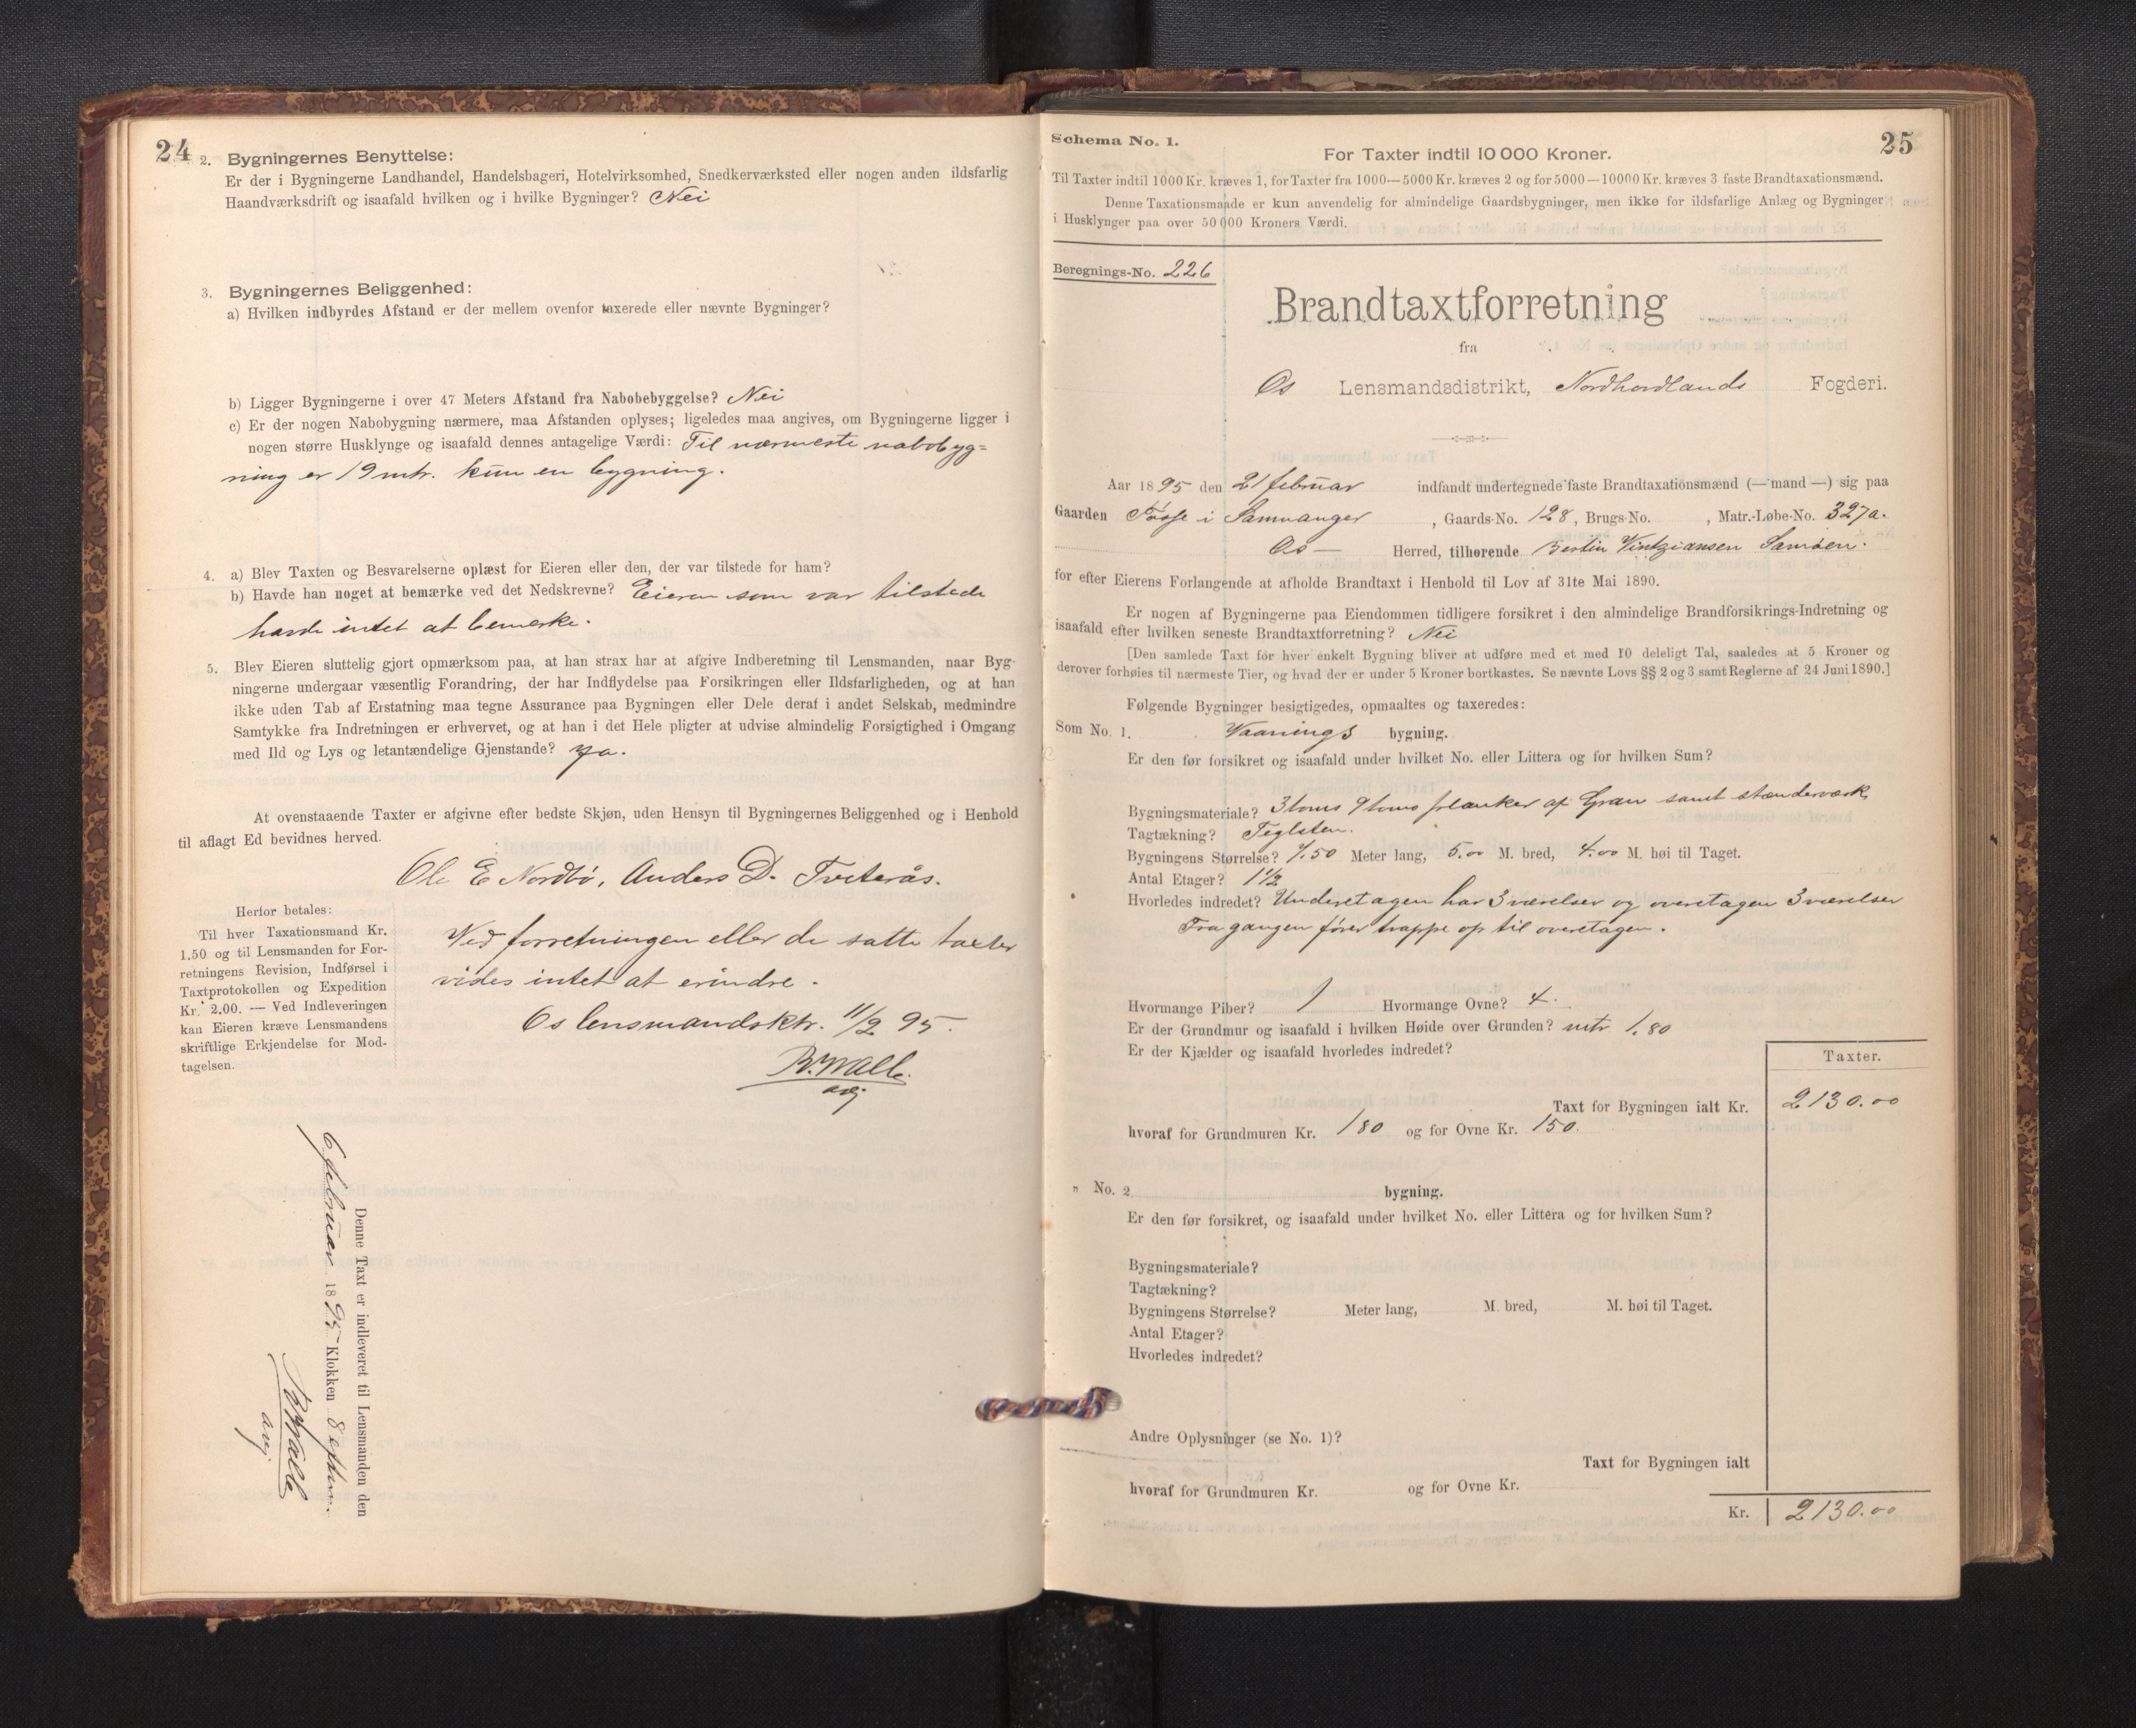 24
2. Bygningernes Benyttelse:
Er der i Bygningerne Landhandel, Handelsbageri, Hotelvirksomhed, Snedkerværksted eller nogen anden ildsfarlig
Haandværksdrift og isaafald hvilken og i hvilke Bygninger? Nei
3. Bygningernes Beliggenhed:
a) Hvilken indbyrdes Afstand er der mellem ovenfor taxerede eller nævnte Bygninger?
b) Ligger Bygningerne i over 47 Meters Afstand fra Nabobebyggelse? Nei
c) Er der nogen Nabobygning nærmere, maa Afstanden oplyses; ligeledes maa angives, om Bygningerne ligger i
nogen større Husklynge og isaafald dennes antagelige Værdi: Til nærmeste nabobyg=
ning er 19 mtr. kun en bygning.
4. a) Blev Taxten og Besvarelserne oplæst for Eieren eller den, der var tilstede for ham?
b) Havde han noget at bemærke ved det Nedskrevne? Eieren som var tilstede
havde intet at bemerke.
5. Blev Eieren sluttelig gjort opmærksom paa, at han strax har at afgive Indberetning til Lensmanden, naar Byg-
ningerne undergaar væsentlig Forandring, der har Indflydelse paa Forsikringen eller Ildsfarligheden, og at han
ikke uden Tab af Erstatning maa tegne Assurance paa Bygningen eller Dele deraf i andet Selskab, medmindre
Samtykke fra Indretningen er erhvervet, og at han i det Hele pligter at udvise almindelig Forsigtighed i Omgang
med Ild og Lys og letantændelige Gjenstande? ja.
At ovenstaaende Taxter er afgivne efter bedste Skjøn, uden Hensyn til Bygningernes Beliggenhed og i Henhold
til aflagt Ed bevidnes herved.
Ole E Nordbö, Anders D. Tveterås.
Herfor betales:
Til hver Taxationsmand Kr.
1.50 og til Lensmanden for For-
retningens Revision, Indførsel i
Taxtprotokollen og Expedition
Kr. 2.00. — Ved Indleveringen
kan Eieren kræve Lensmandens
skriftlige Erkjendelse for Mod-
tagelsen.
Ved forretningen eller de satte taxter
vides intet at erindre.
Os lensmandsktr. 11/2 95.
Denne Taxt er indleveret til Lensmanden den
6 februar 1895 Klokken 8 eftm.
25
Schema No. 1.
For Taxter indtil 10 000 Kroner.
Til Taxter indtil 1000 Kr. kræves 1, for Taxter fra 1000—5000 Kr. kræves 2 og for 5000—10000 Kr. kræves 3 faste Brandtaxationsmænd.
Denne Taxationsmaade er kun anvendelig for almindelige Gaardsbygninger, men ikke for ildsfarlige Anlæg og Bygninger
i Husklynger paa over 50 000 Kroners Værdi.
Beregnings-No. 226
Brandtaxtforretning
fra
Os Lensmandsdistrikt, Nordhordlands Fogderi.
Aar 1895 den 21 februar indfandt undertegnede faste Brandtaxationsmænd (—mand—) sig paa
Gaarden Tøsse i Samnanger, Gaards-No. 128, Brugs-No. , Matr.-Løbe-No. 327a.
Os — Herred, tilhørende Samöen.
for efter Eierens Forlangende at afholde Brandtaxt i Henhold til Lov af 31te Mai 1890.
Er nogen af Bygningerne paa Eiendommen tidligere forsikret i den almindelige Brandforsikrings-Indretning og
isaafald efter hvilken seneste Brandtaxtforretning? Nei
[Den samlede Taxt for hver enkelt Bygning bliver at udføre med et med 10 deleligt Tal, saaledes at 5 Kroner og
derover forhøies til nærmeste Tier, og hvad der er under 5 Kroner bortkastes. Se nævnte Lovs §§ 2 og 3 samt Reglerne af 24 Juni 1890.]
Følgende Bygninger besigtigedes, opmaaltes og taxeredes:
Som No. 1. Vaanings bygning.
Er den før forsikret og isaafald under hvilket No. eller Littera og for hvilken Sum?
Bygningsmateriale? 3 toms 9 toms planker af Gran samt stænderværk,
Tagtækning? Teglsten.
Bygningens Størrelse? 7.50 Meter lang, 5.00 M. bred, 4.00 M. høi til Taget.
Antal Etager? 1 1/2
Hvorledes indredet? Underetagen har 3 værelser og overetagen 3 værelser
Fra gangen fører trappe op til overetagen.
Hvormange Piber? 1 Hvormange Ovne? 4.
Er der Grundmur og isaafald i hvilken Høide over Grunden? mtr 1.80
Er der Kjælder og isaafald hvorledes indredet?
Taxter.
Taxt for Bygningen ialt Kr. 2130.00
hvoraf for Grundmuren Kr. 180 og for Ovne Kr. 150.
" No. 2 bygning.
Er den før forsikret, og isaafald under hvilket No. eller Littera og for hvilken Sum?
Bygningsmateriale?
Tagtækning?
Bygningens Størrelse? Meter lang, M. bred, M. høi til Taget.
Antal Etager?
Hvorledes indredet?
Andre Oplysninger (se No. 1)?
Taxt for Bygningen ialt
hvoraf for Grundmuren Kr. og for Ovne Kr.
Kr. 2130.00